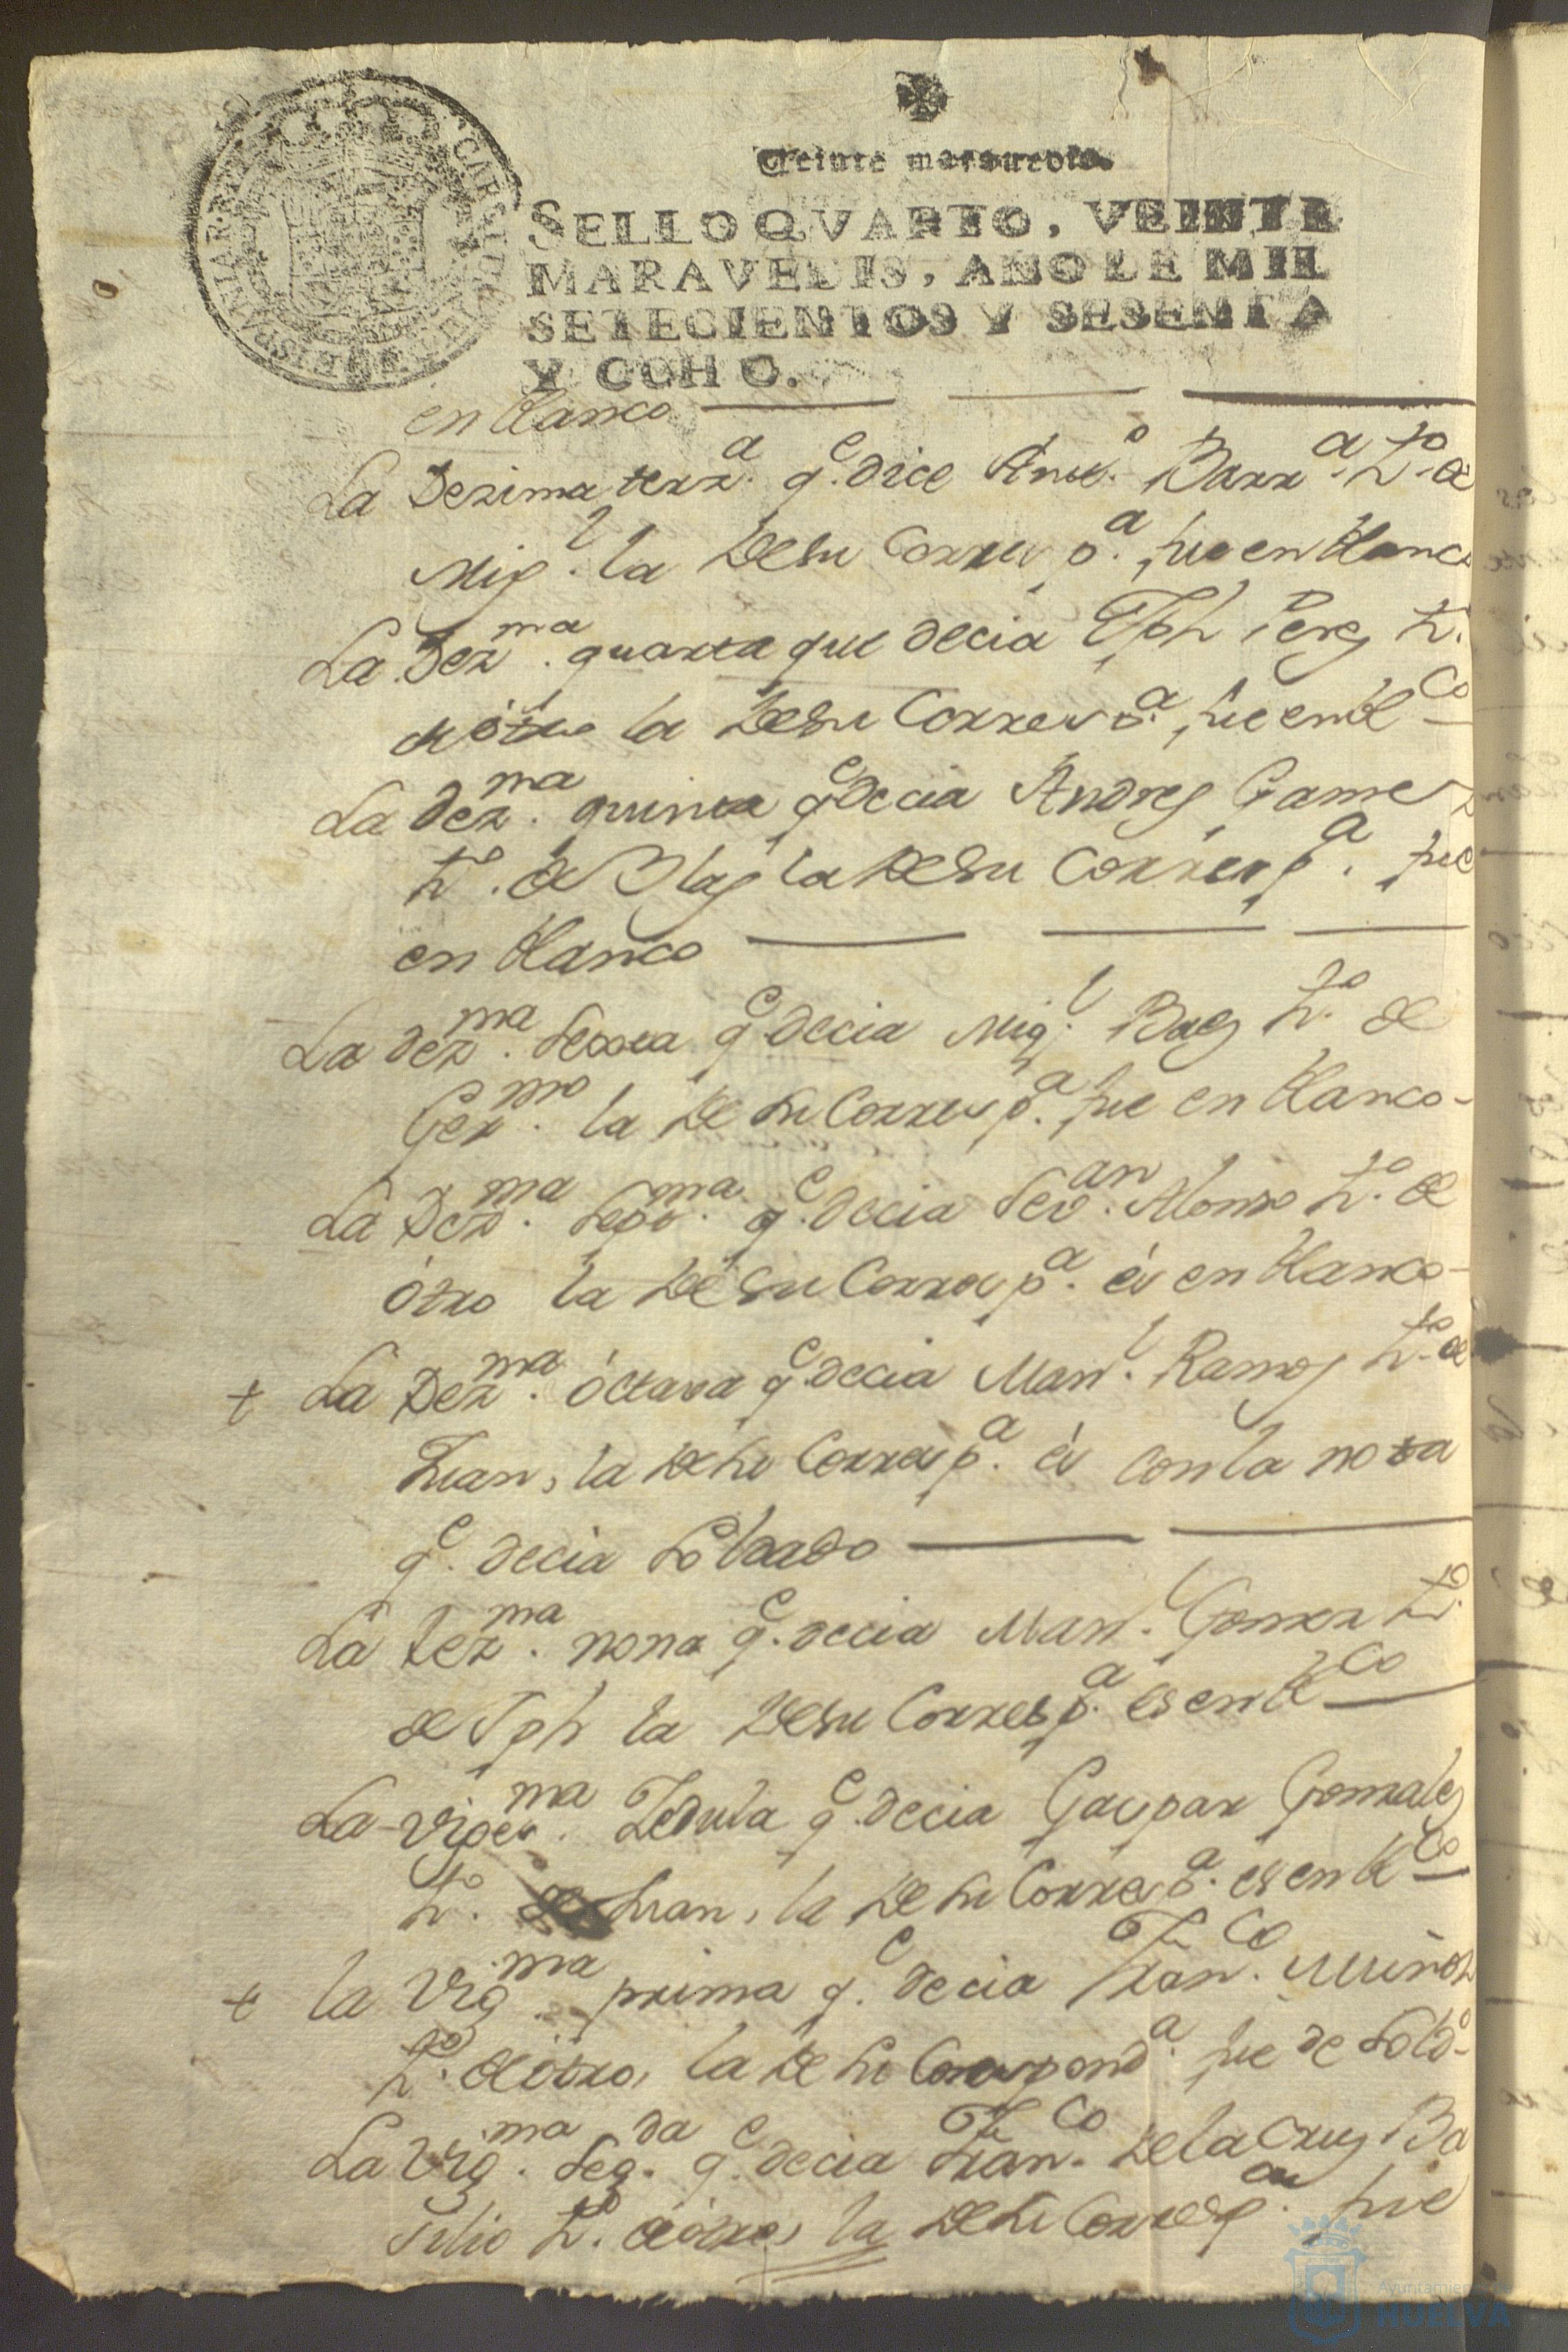 Veinte maravedis.
SELLO QVARTO, VEINTE
MARAVEDIS, AÑO DE MIL
SETECIENTOS Y SESENTA
Y OCHO.
en blanco
La Dezima terz.ª q.e dice Ant.º Barr.ª h.º de
Mig.l la de su Corresp.ª fue en blanco
La Dez.ma quarta que decia Jph Perez h.º
de otro la de su Corresp.ª fue en bl.co
La dez.ma quinta q.e decia Andres Gamez
h.º de Blas la de su Corresp.ª fue
en blanco
La dez.ma sexta q.e decia Mig.l Baez h.º de
Ger.mo la de su Corresp.ª fue en blanco
La Dez.ma sep.ma q.e decia Sev.an Alonso h.º de
otro la de su Corresp.ª es en blanco
+ La Dez.ma octava q.e decia Man.l Ramos h.º de
Juan, la de su Corresp.ª es con la nota
q.e decia Soldado
La Dez.ma nona q.e decia Man.l Gomez h.º
de Jph la de su Corresp.ª es en bl.co
La Viges.ma Zedula q.e decia Gaspar Gonzales
h.º de Juan, la de su Corresp.ª es en bl.co
+ la Vig.ma prima q.e decia Fran.co Muñoz
h.º de otro, la de su Correspond.ª fue de Sold.º
La Vig.ma seg.da q.e decia Fran.co de la Cruz Ba
silio h.º de otro, la de su Corresp.ª fue
Ayuntamiento de
HUELVA